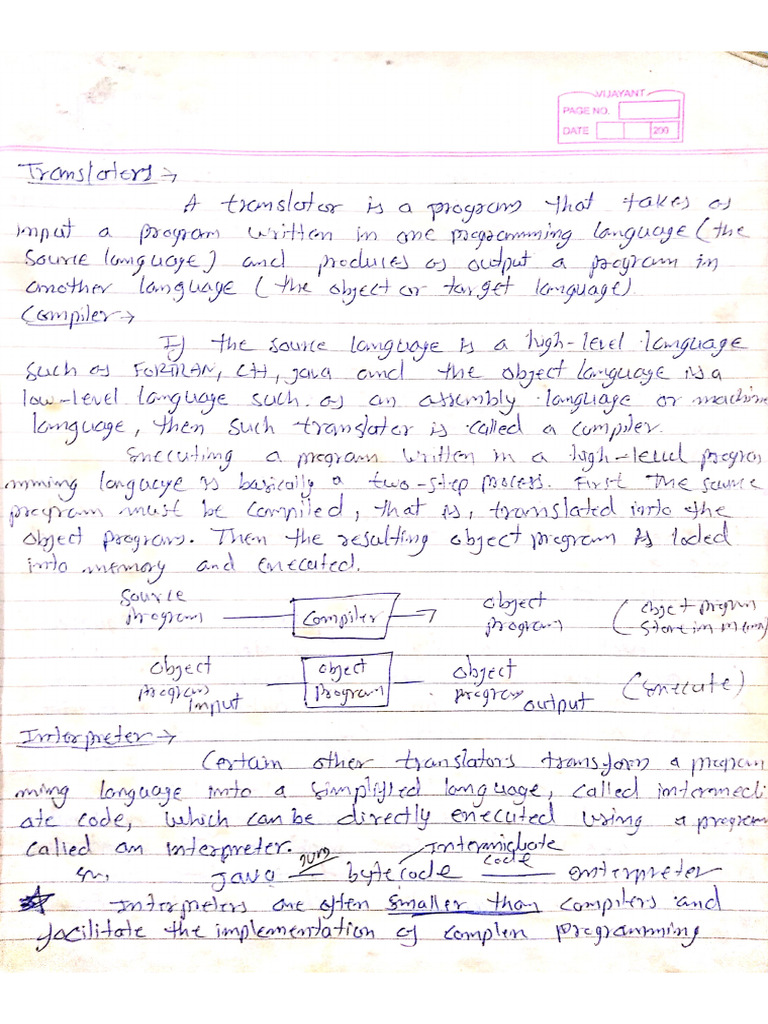 VIJAYANT
PAGE NO.
DATE 200
Translaters →
A translator is a program that takes as
input a program written in one programming language (the
source language) and produces as output a program in
another language (the object or target language)
Compiler →
If the source language is a high-level language
such as FORTRAN, C++, java and the object language is a
low-level language such as an assembly language or machine
language, then such translator is called a compiler.
Executing a program written in a high-level program
mming language is basically a two-step process. First the source
program must be compiled, that is, translated into the
object program. Then the resulting object program is loded
into memory and executed.
Source program → Compiler → object program (object program store in mem)
object program input — object program — object program output (execute)
Interpreter →
Certain other translators transform a program
ming language into a simplified language, called intermedi
ate code, which can be directly executed using a program
called an interpreter.
java — bytecode — code
Interpreters are often smaller than compilers and
facilitate the implementation of complex programming